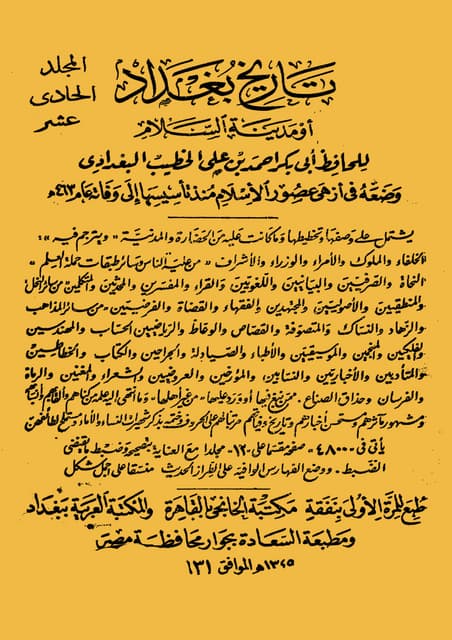 المجلد
الحادى
عشر
تاريخ بغداد
أو مدينة السلام
للحافظ أبي بكر احمد بن علي الخطيب البغدادى
وضعه فى أزهى عصور الأسلام منذ تأسيسها إلى وفاته عام ٤٦٣ هـ
يشتمل على وصفها وتخطيطها وما كانت عليه من الحضارة والمدنية « ويترجم فيه »
الخلفاء والملوك والأمراء والوزراء والأشراف « من علية الناس وسائر طبقات حملة العلم »
النحاة والصرفيين والبيانيين واللغويين والقراء والمفسرين والمحدثين والمتكلمين من سائر النحل
والمنطقيين والأصوليين والمجتهدين والفقهاء والقضاة والفرضيين - من سائر المذاهب
والزهاد والنساك والمتصوفة والقصاص والوعاظ والرياضيين الحساب والمهندسين
والفلكيين والمنجمين والموسيقيين والأطباء والصيادلة والجراحين والكتاب والخطاطين
والمتأدبين والأخباريين والنسابين، والمؤرخين والعروضيين والشعراء والمغنين والرماة
والفرسان وحذاق الصناع. ممن نبغ فيها أو ورد عليها - من غير أهلها - وما انتهى اليه علمه من كناهم وألقابهم أنسابهم
ومشهور مآثرهم ومستحسن أخبارهم وتاريخ وفاتهم مرتبا لهم على الحروف وختمه بذكر شهيرات النساء
يأتى فى ٤٨٠٠ صفحة مقسما على -١٢- مجلدا مع العناية بتصحيحه وضبط ما يقتضى
الضبط. ووضع الفهارس الوافية على الطراز الحديث منسقا على أجمل شكل
طبع للمرة الأولى بنفقة مكتبة الخانجى بالقاهرة والمكتبة العربية ببغداد
ومطبعة السعادة بجوار محافظة مصر
١٣٤٥ هـ الموافق ١٣١